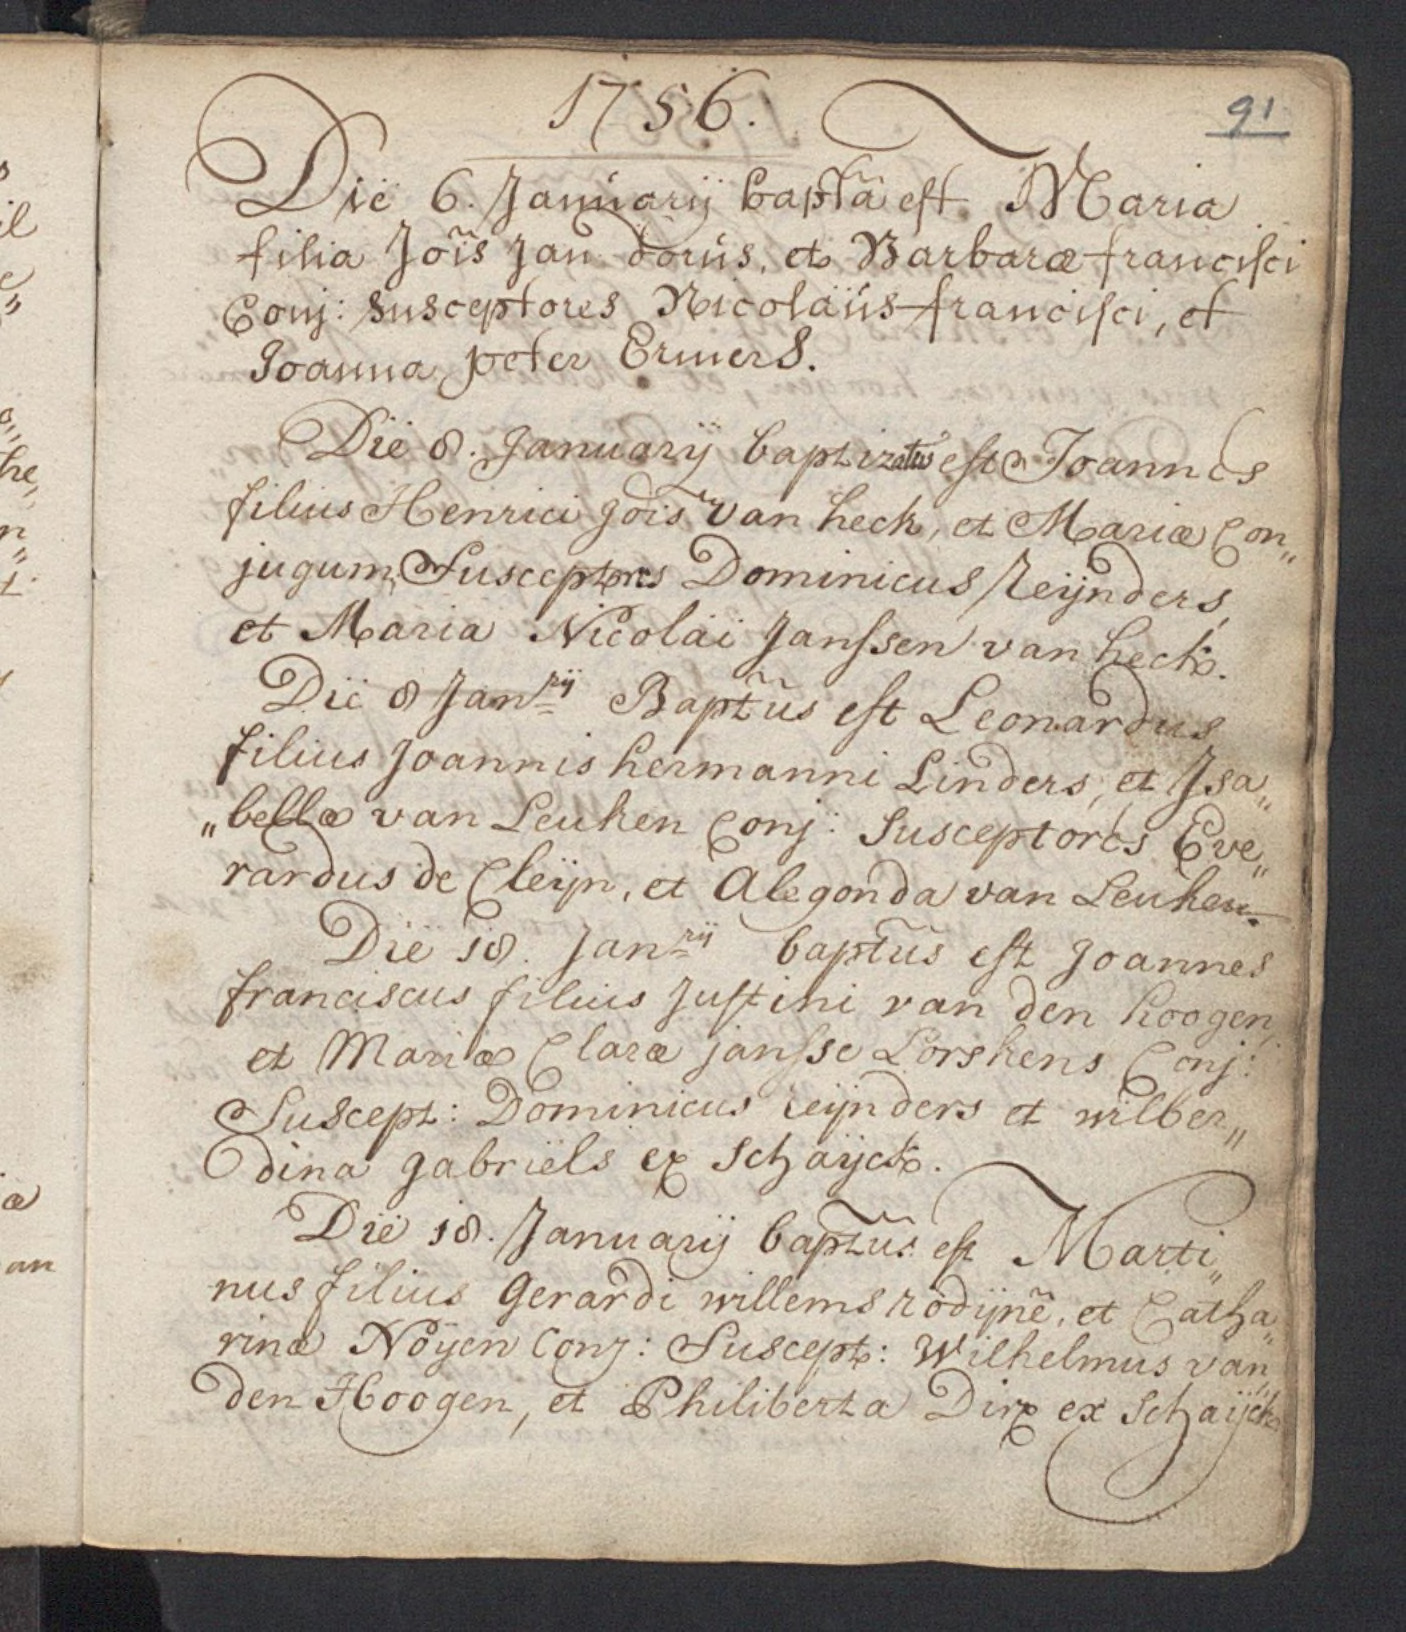 1756.
91
Die 6. Januarij baptã est Maria
filia Jois Jan dorus, et Barbaræ francisci
Conj: susceptores Nicolaus francisci, et
Joanna peter Ermers.
Die 8. Januarij baptizatus est Joannes
filius Henrici Jois van heck, et Mariæ Con„
jugum, Susceptores Dominicus Reijnders,
et Maria Nicolai Janssen van heck.
Die 8 Janrij Baptũs est Leonardus
filius Joannis hermanni Linders, et Jsa„
„bellæ van Leuken Conj: Susceptores Eve„
rardus de Cleijn, et Alegonda van Leuken.
Die 18. Janrij baptũs est Joannes
franciscus filius Justini van den hoogen,
et Mariæ Claræ jansse Lorskens Conj:
Suscept: Dominicus reijnders et wilber„
dina gabriels ex Schaijck.
Die 18. Januarij baptũs est Marti„
nus filius Gerardi willems rodijne, et Catha„
rinæ Noijen Conj: Suscept: Wilhelmus van
den Hoogen, et Philiberta Dirx ex Schaijck